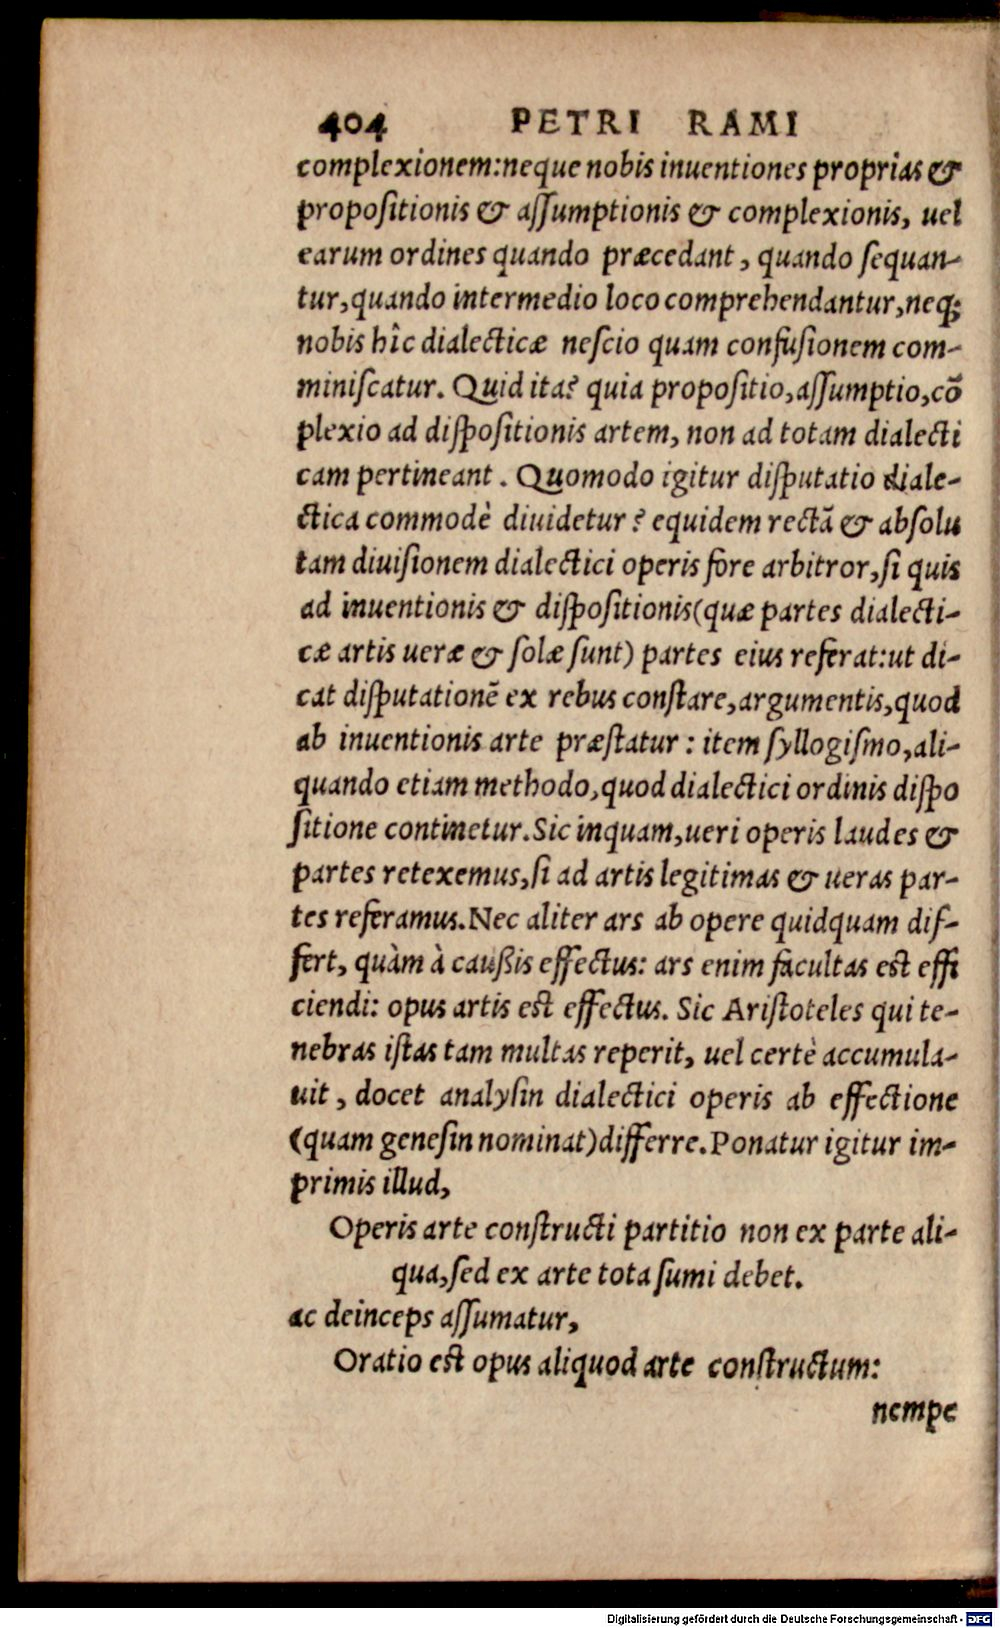 404 PETRI RAMI
complexionem:neque nobis inuentiones proprias &
propoſitionis & aſſumptionis & complexionis, uel
earum ordines quando præcedant, quando ſequan-
tur,quando intermedio loco comprehendantur,neq́;
nobis hîc dialecticæ neſcio quam confuſionem com-
miniſcatur. Quid ita? quia propoſitio,aſſumptio,cō
plexio ad diſpoſitionis artem, non ad totam dialecti
cam pertineant. Quomodo igitur diſputatio diale-
ctica commodè diuidetur? equidem rectā & abſolu
tam diuiſionem dialectici operis fore arbitror,ſi quis
ad inuentionis & diſpoſitionis(quæ partes dialecti-
cæ artis ueræ & ſolæ ſunt) partes eius referat:ut di-
cat diſputationē ex rebus conſtare,argumentis,quod
ab inuentionis arte præſtatur: item ſyllogiſmo,ali-
quando etiam methodo,quod dialectici ordinis diſpo
ſitione continetur.Sic inquam,ueri operis laudes &
partes retexemus,ſi ad artis legitimas & ueras par-
tes referamus.Nec aliter ars ab opere quidquam dif-
fert, quàm à cauſsis effectus: ars enim facultas eſt effi
ciendi: opus artis eſt effectus. Sic Ariſtoteles qui te-
nebras iſtas tam multas reperit, uel certè accumula-
uit, docet analyſin dialectici operis ab effectione
(quam geneſin nominat)differre.Ponatur igitur im-
primis illud,
Operis arte conſtructi partitio non ex parte ali-
qua,ſed ex arte tota ſumi debet.
ac deinceps aſſumatur,
Oratio eſt opus aliquod arte conſtructum:
nempe
Digitalisierung gefördert durch die Deutsche Forschungsgemeinschaft - DFG